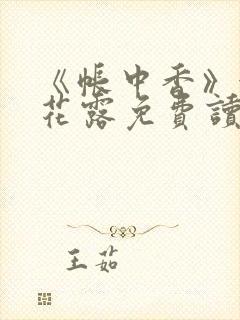 《帳中香》
花露免費讀
王茹